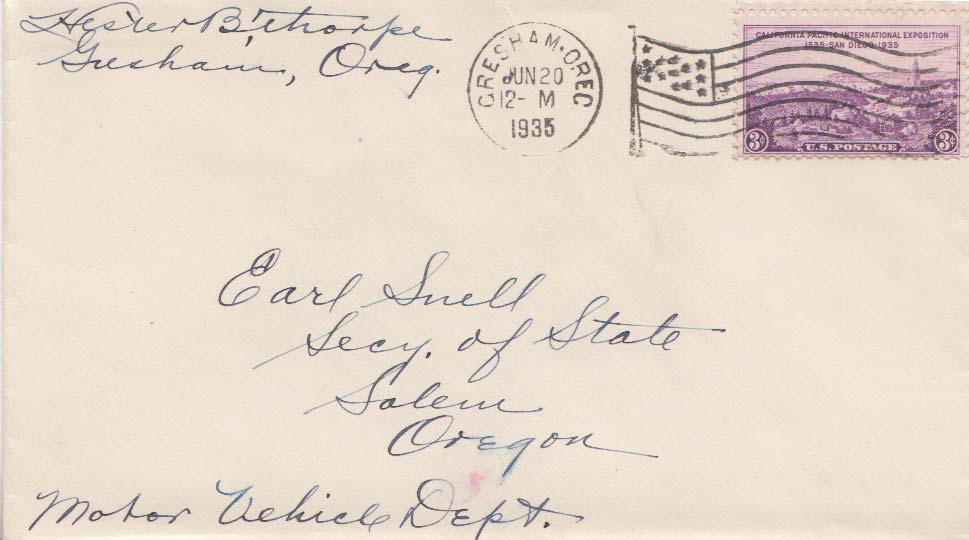 Hester B. Thorpe
Gresham, Oreg.
GRESHAM·OREG
JUN 20
12- M
1935
CALIFORNIA PACIFIC INTERNATIONAL EXPOSITION
1535·SAN DIEGO·1935
3¢ U.S. POSTAGE 3¢
Earl Snell
Secy. of State
Salem
Oregon
Motor Vehicle Dept.